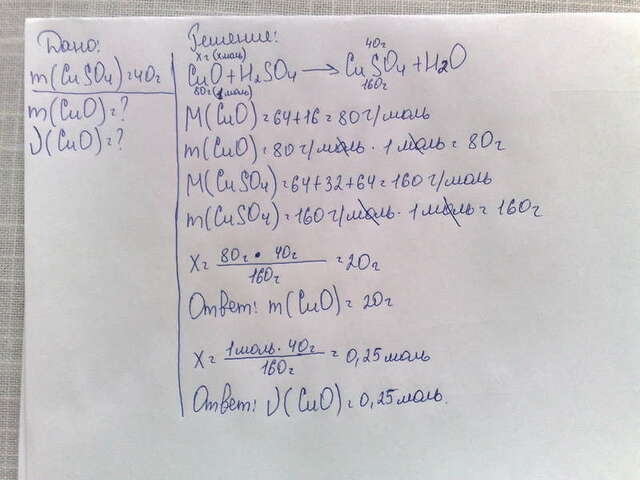 Дано:
m(CuSO4)=40г
m(CuO)=?
ν(CuO)=?
Решение:
xг(xмоль) 40г
CuO+H2SO4 → CuSO4+H2O
80г(1моль) 160г
M(CuO)=64+16=80г/моль
m(CuO)=80г/моль · 1моль=80г
M(CuSO4)=64+32+64=160г/моль
m(CuSO4)=160г/моль · 1моль=160г
x= 80г · 40г / 160г =20г
Ответ: m(CuO)=20г
x= 1моль · 40г / 160г =0,25моль
Ответ: ν(CuO)=0,25моль.